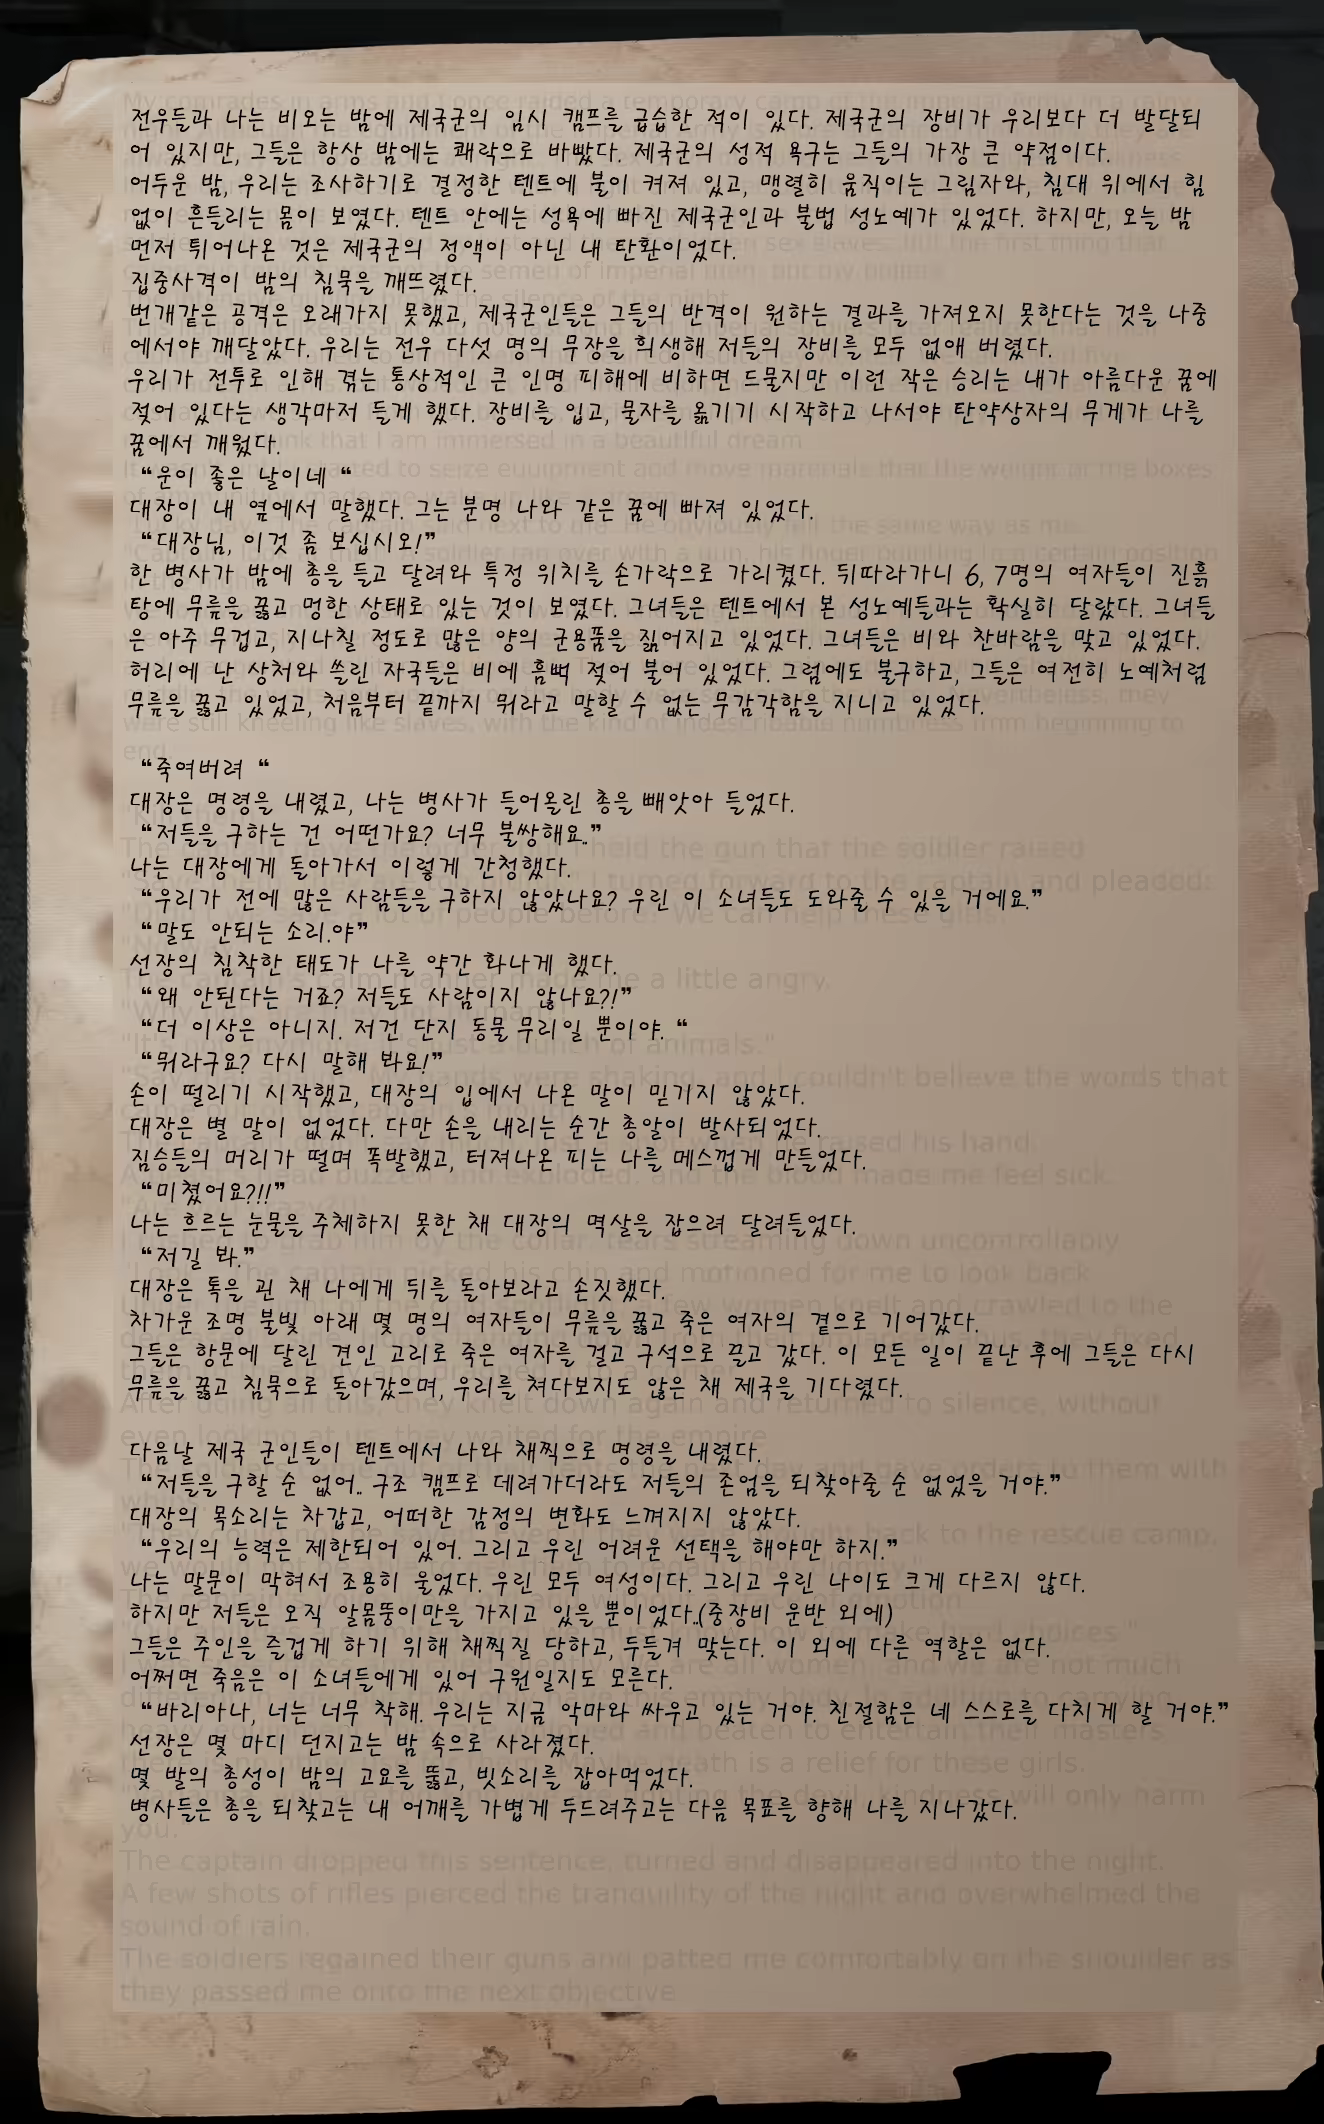 전우들과 나는 비오는 밤에 제국군의 임시 캠프를 급습한 적이 있다. 제국군의 장비가 우리보다 더 발달되
어 있지만, 그들은 항상 밤에는 쾌락으로 바빴다. 제국군의 성적 욕구는 그들의 가장 큰 약점이다.
어두운 밤, 우리는 조사하기로 결정한 텐트에 불이 켜져 있고, 맹렬히 움직이는 그림자와, 침대 위에서 힘
없이 흔들리는 몸이 보였다. 텐트 안에는 성욕에 빠진 제국군인과 불법 성노예가 있었다. 하지만, 오늘 밤
먼저 튀어나온 것은 제국군의 정액이 아닌 내 탄환이었다.
집중사격이 밤의 침묵을 깨뜨렸다.
번개같은 공격은 오래가지 못했고, 제국군인들은 그들의 반격이 원하는 결과를 가져오지 못한다는 것을 나중
에서야 깨달았다. 우리는 전우 다섯 명의 무장을 희생해 저들의 장비를 모두 없애 버렸다.
우리가 전투로 인해 겪는 통상적인 큰 인명 피해에 비하면 드물지만 이런 작은 승리는 내가 아름다운 꿈에
젖어 있다는 생각마저 들게 했다. 장비를 입고, 물자를 옮기기 시작하고 나서야 탄약상자의 무게가 나를
꿈에서 깨웠다.
“운이 좋은 날이네 “
대장이 내 옆에서 말했다. 그는 분명 나와 같은 꿈에 빠져 있었다.
“대장님, 이것 좀 보십시오!”
한 병사가 밤에 총을 들고 달려와 특정 위치를 손가락으로 가리켰다. 뒤따라가니 6, 7명의 여자들이 진흙
탕에 무릎을 꿇고 멍한 상태로 있는 것이 보였다. 그녀들은 텐트에서 본 성노예들과는 확실히 달랐다. 그녀들
은 아주 무겁고, 지나칠 정도로 많은 양의 군용품을 짊어지고 있었다. 그녀들은 비와 찬바람을 맞고 있었다.
허리에 난 상처와 쓸린 자국들은 비에 흠뻑 젖어 불어 있었다. 그럼에도 불구하고, 그들은 여전히 노예처럼
무릎을 꿇고 있었고, 처음부터 끝까지 뭐라고 말할 수 없는 무감각함을 지니고 있었다.
“죽여버려 “
대장은 명령을 내렸고, 나는 병사가 들어올린 총을 빼앗아 들었다.
“저들을 구하는 건 어떤가요? 너무 불쌍해요..”
나는 대장에게 돌아가서 이렇게 간청했다.
“우리가 전에 많은 사람들을 구하지 않았나요? 우린 이 소녀들도 도와줄 수 있을 거에요.”
“말도 안되는 소리.야”
선장의 침착한 태도가 나를 약간 화나게 했다.
“왜 안된다는 거죠? 저들도 사람이지 않나요?!”
“더 이상은 아니지. 저건 단지 동물 무리일 뿐이야. “
“뭐라구요? 다시 말해 봐요!”
손이 떨리기 시작했고, 대장의 입에서 나온 말이 믿기지 않았다.
대장은 별 말이 없었다. 다만 손을 내리는 순간 총알이 발사되었다.
짐승들의 머리가 떨며 폭발했고, 터져나온 피는 나를 메스껍게 만들었다.
“미쳤어요?!!”
나는 흐르는 눈물을 주체하지 못한 채 대장의 멱살을 잡으려 달려들었다.
“저길 봐.”
대장은 톡을 괸 채 나에게 뒤를 돌아보라고 손짓했다.
차가운 조명 불빛 아래 몇 명의 여자들이 무릎을 꿇고 죽은 여자의 곁으로 기어갔다.
그들은 항문에 달린 견인 고리로 죽은 여자를 걸고 구석으로 끌고 갔다. 이 모든 일이 끝난 후에 그들은 다시
무릎을 꿇고 침묵으로 돌아갔으며, 우리를 쳐다보지도 않은 채 제국을 기다렸다.
다음날 제국 군인들이 텐트에서 나와 채찍으로 명령을 내렸다.
“저들을 구할 순 없어.. 구조 캠프로 데려가더라도 저들의 존엄을 되찾아줄 순 없었을 거야.”
대장의 목소리는 차갑고, 어떠한 감정의 변화도 느껴지지 않았다.
“우리의 능력은 제한되어 있어. 그리고 우린 어려운 선택을 해야만 하지.”
나는 말문이 막혀서 조용히 울었다. 우린 모두 여성이다. 그리고 우린 나이도 크게 다르지 않다.
하지만 저들은 오직 알몸뚱이만을 가지고 있을 뿐이었다..(중장비 운반 외에)
그들은 주인을 즐겁게 하기 위해 채찍질 당하고, 두들겨 맞는다. 이 외에 다른 역할은 없다.
어쩌면 죽음은 이 소녀들에게 있어 구원일지도 모른다.
“바리아나, 너는 너무 착해. 우리는 지금 악마와 싸우고 있는 거야. 친절함은 네 스스로를 다치게 할 거야.”
선장은 몇 마디 던지고는 밤 속으로 사라졌다.
몇 발의 총성이 밤의 고요를 뚫고, 빗소리를 잡아먹었다.
병사들은 총을 되찾고는 내 어깨를 가볍게 두드려주고는 다음 목표를 향해 나를 지나갔다.
The captain dropped this sentence, turned and disappeared into the night.
A few shots of rifles pierced the tranquility of the night and overwhelmed the
sound of rain.
The soldiers regained their guns and patted me comfortably on the shoulder as
they passed me onto the next objective